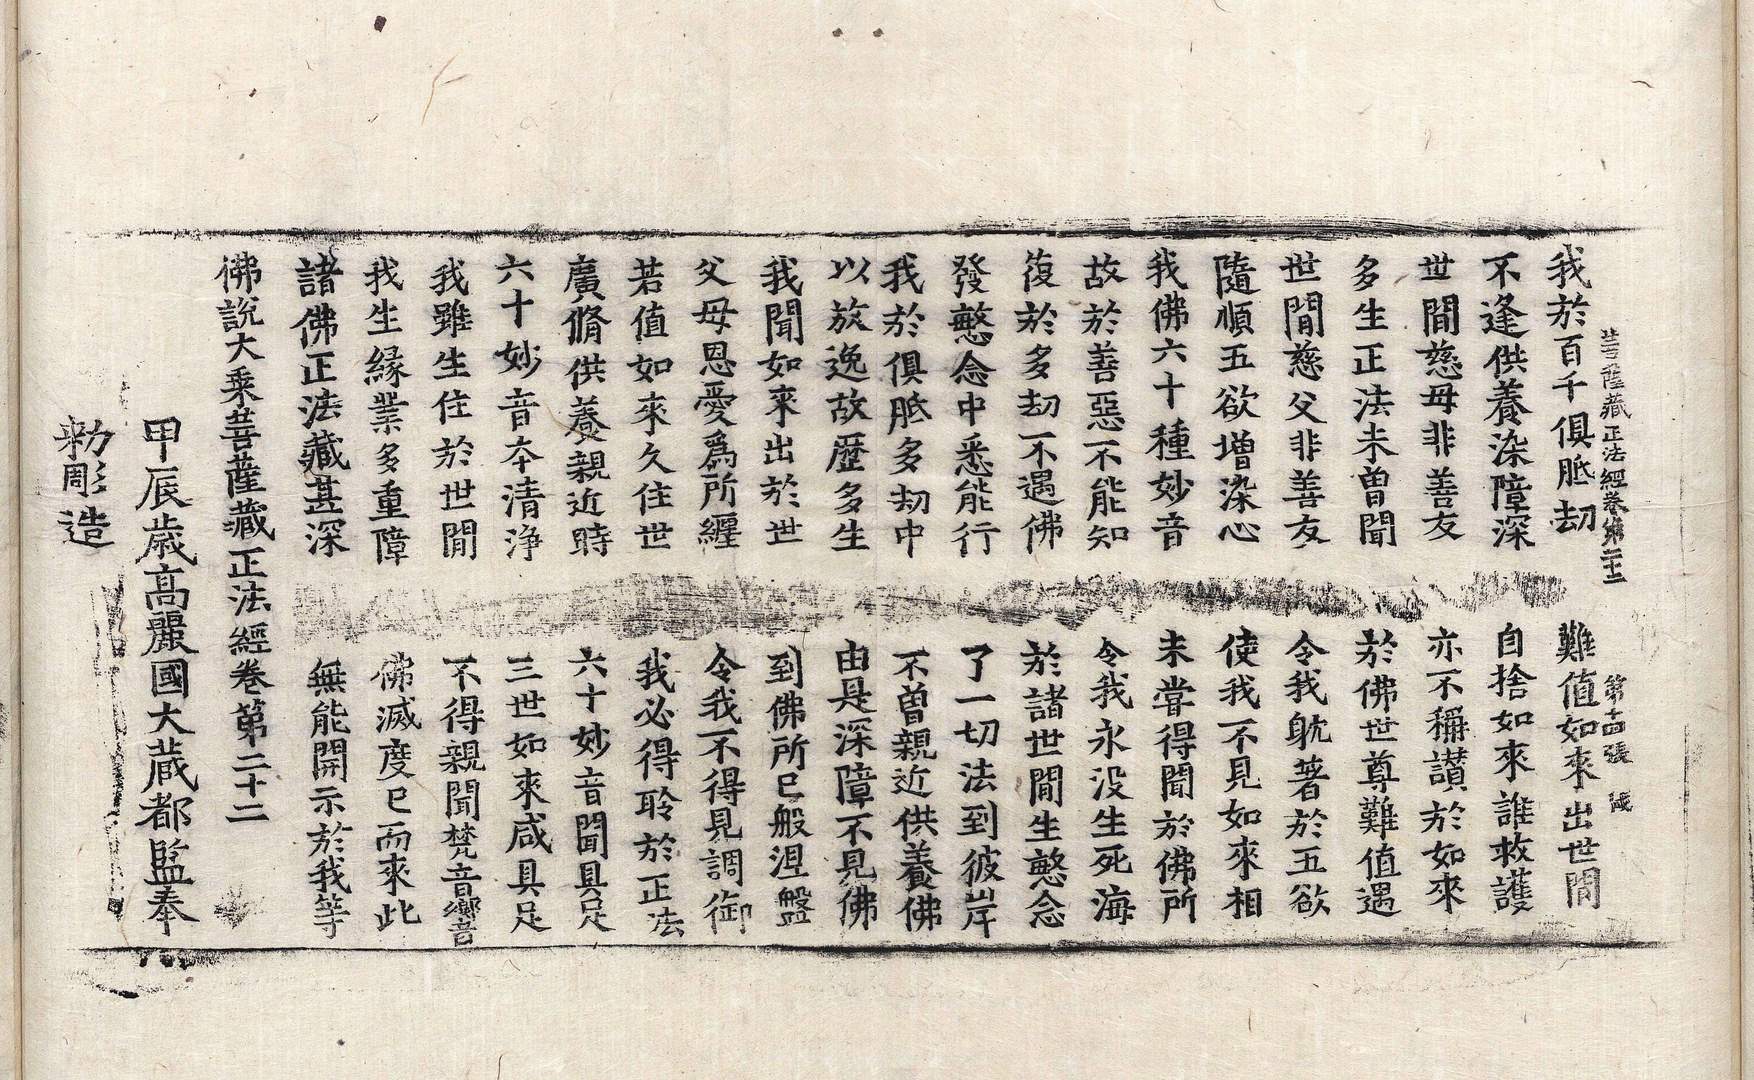 菩薩藏正法經卷第二十二　第十四張　咸
我於百千俱胝劫　難值如來出世間
不逢供養染障深　自捨如來誰救護
世間慈母非善友　亦不稱讃於如來
多生正法未曽聞　於佛世尊難值遇
世間慈父非善友　令我躭著於五欲
隨順五欲增染心　使我不見如來相
我佛六十種妙音　未甞得聞於佛所
故於善惡不能知　令我永没生死海
復於多劫不遇佛　於諸世間生慜念
發慜念中悉能行　了一切法到彼岸
我於俱胝多劫中　不曽親近供養佛
以放逸故歷多生　由是深障不見佛
我聞如來出於世　到佛所已般涅盤
父母恩愛爲所纒　令我不得見調御
若值如來久住世　我必得聆於正法
廣脩供養親近時　六十妙音聞具足
六十妙音夲清淨　三世如來咸具足
我雖生住於世間　不得親聞梵音響音
我生縁業多重障　佛滅度已而來此
諸佛正法藏甚深　無能開示於我等
佛說大乘菩薩藏正法經卷第二十二
甲辰歳高麗國大藏都監奉
勑彫造